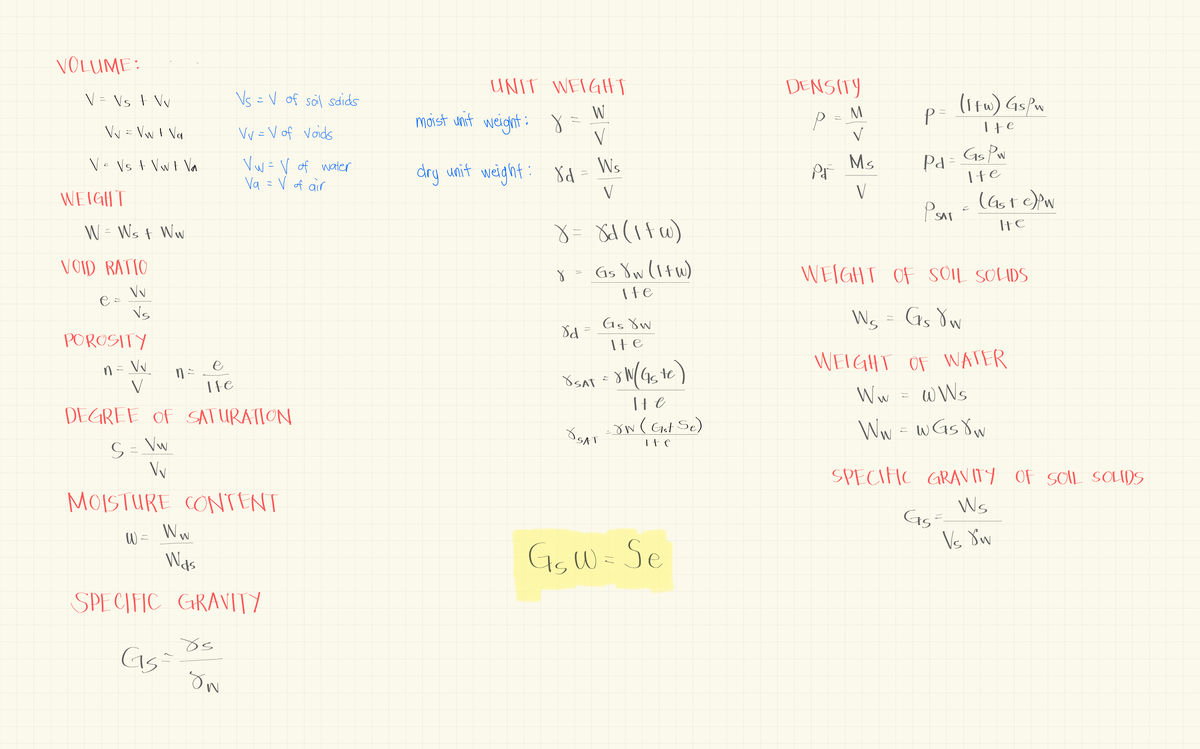 VOLUME:
V = Vs + Vv
Vs = V of soil solids
Vv = Vw + Va
Vv = V of voids
V = Vs + Vw + Va
Vw = V of water
Va = V of air
WEIGHT
W = Ws + Ww
VOID RATIO
e = Vv / Vs
POROSITY
n = Vv / V n = e / 1+e
DEGREE OF SATURATION
S = Vw / Vv
MOISTURE CONTENT
w = Ww / Wds
SPECIFIC GRAVITY
Gs = γs / γw
UNIT WEIGHT
moist unit weight: γ = W / V
dry unit weight: γd = Ws / V
γ = γd (1+w)
γ = Gs γw (1+w) / 1+e
γd = Gs γw / 1+e
γSAT = γw (Gs + e) / 1+e
γSAT = γw (Gs + Se) / 1+e
Gs w = Se
DENSITY
ρ = M / V
ρ = (1+w) Gs ρw / 1+e
ρd = Ms / V
ρd = Gs ρw / 1+e
ρSAT = (Gs + e) ρw / 1+e
WEIGHT OF SOIL SOLIDS
Ws = Gs γw
WEIGHT OF WATER
Ww = w Ws
Ww = w Gs γw
SPECIFIC GRAVITY OF SOIL SOLIDS
Gs = Ws / Vs γw